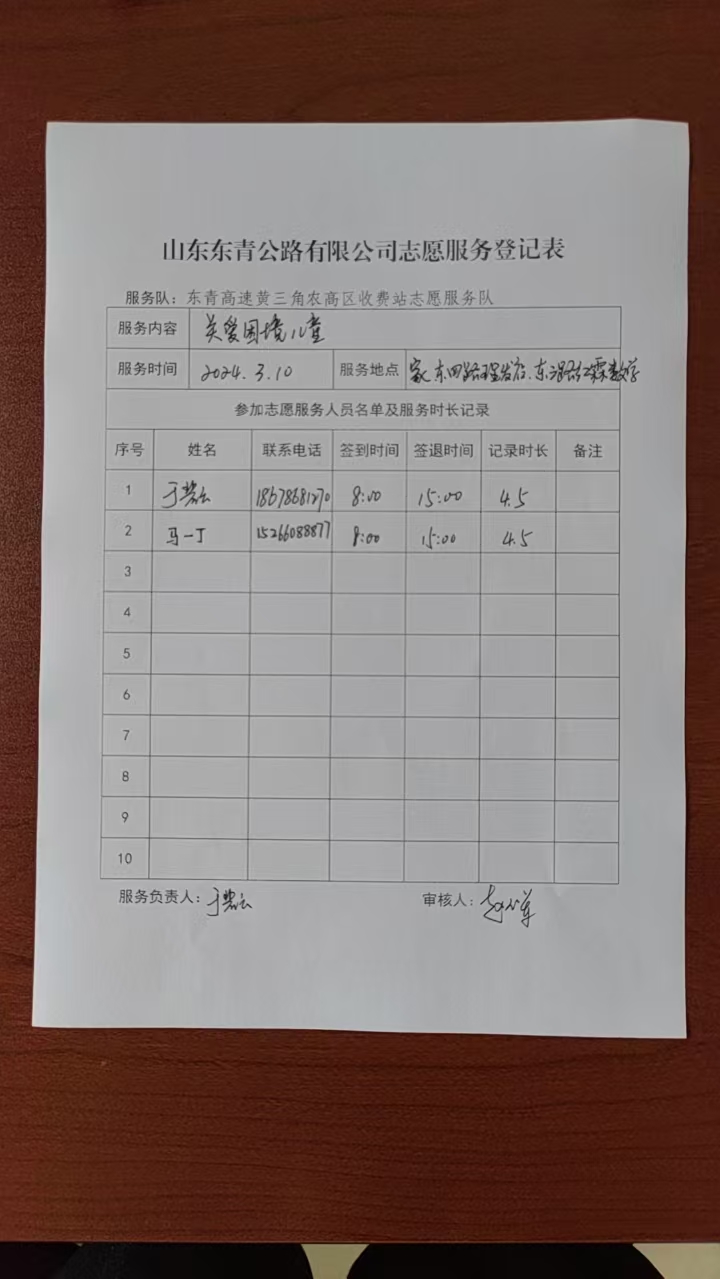 山东东青公路有限公司志愿服务登记表
服务队：东青高速黄三角农高区收费站志愿服务队
服务内容 关爱困境儿童
服务时间 2024.3.10 服务地点 家、东四路理发店、东
参加志愿服务人员名单及服务时长记录
序号 姓名 联系电话 签到时间 签退时间 记录时长 备注
1 于 18678681270 8:00 15:00 4.5
2 马一丁 15266088877 8:00 15:00 4.5
3
4
5
6
7
8
9
10
服务负责人：于 审核人：赵